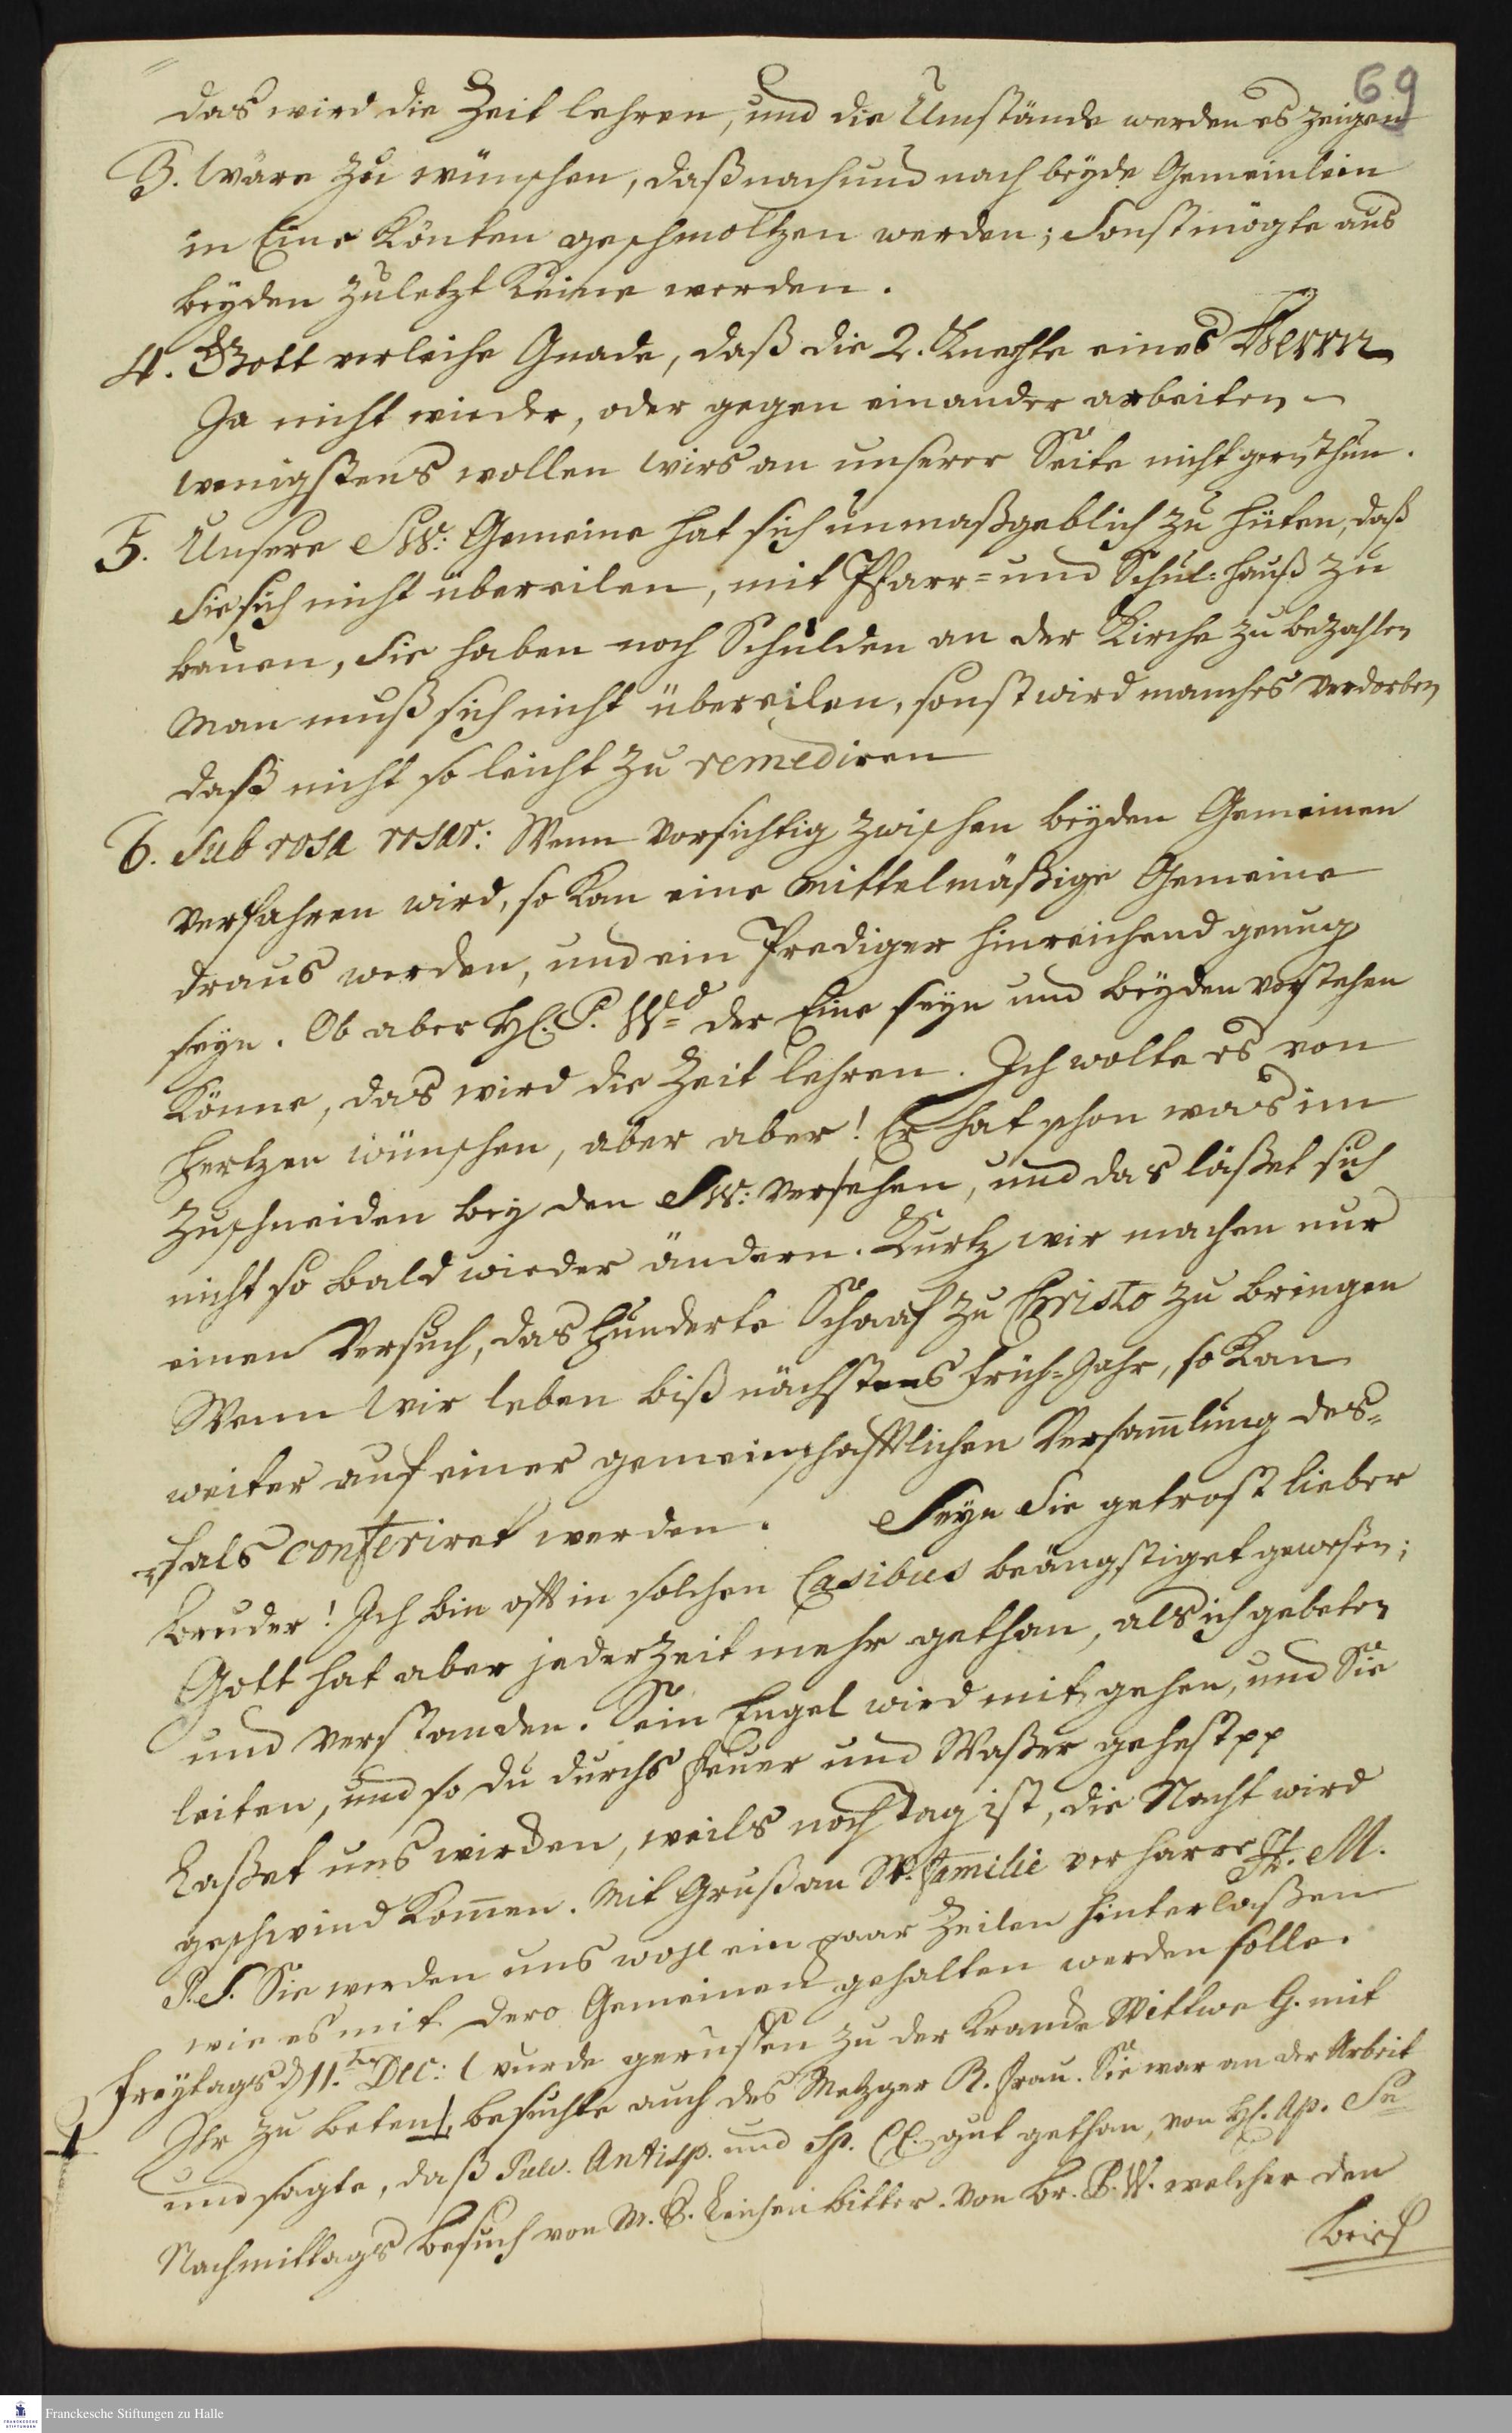 69
das wird die Zeit lehren, und die Umstände werden es zeigen
3. Wäre zu wünschen, daß nach und nach beyde Gemeinlein
in Eine könten geschmoltzen werden; sonst mögte aus
beyden zuletzt Keine werden.
4. Gott verleihe Gnade, daß die 2. Knechte eines Herrn
Ja nicht wieder, oder gegen einander arbeiten –
wenigstens wollen wirs an unserer Seite nicht gern thun.
5. Unsere Sw: Gemeine hat sich unmaßgeblich zu hüten, daß
sie sich nicht übereilen, mit Pfarr= und Schul=hauß zu
bauen, sie haben noch Schulden an der Kirche zu bezahlen
Man muß sich nicht übereilen, sonst wird manches verdorben
daß nicht so leicht zu remediren
6. Sub rosa rosar: Wenn vorsichtig zwischen beyden Gemeinen
verfahren wird, so kan eine mittelmäßige Gemeine
draus werden, und ein Prediger hinreichend genug
seyn. Ob aber H. P. W=d der Eine seyn und beyden vorstehen
könne, das wird die Zeit lehren. Ich wolte es von
Hertzen wünschen, aber aber! Er hat schon was im
Zuschneiden bey den Sw: versehen, und das läßet sich
nicht so bald wieder ändern. Kurtz wir machen nur
einen Versuch, das hunderte Schaaf zu Christo zu bringen
Wenn wir leben biß nächstens Früh=Jahr, so kan
weiter auf einer gemeinschafftlichen Versam̄lung des=
fals conferiret werden. Seyn Sie getrost lieber
Bruder! Ich bin offt in solchen Casibus beängstiget gewesen;
Gott hat aber jederzeit mehr gethan, als ich gebeten
und verstanden. Sein Engel wird mit gehen, und Sie
leiten, und so du durchs Feuer und Waßer gehest pp
Laßet uns wircken, weils noch Tag ist, die Nacht wird
geschwind kom̄en. Mit Gruß an W. Familie verharre H. M.
P. S. Sie werden uns wohl ein paar Zeilen hinterlaßen
wie es mit dero Gemeinen gehalten werden solle.
Freytags d 11.ten Dec: wurde gerufen zu der krancke Wittwe G. mit
Ihr zu beten, besuchte auch des Metzger R. Frau. Sie war an der Arbeit
und sagte, daß Pulv. Antisp. und Sp. CC. gut gethan, von H. Ap.
Nachmittags Besuch von M. S. Leichenbitter. Von Br. B. W. welcher den
Brief
Franckesche Stiftungen zu Halle